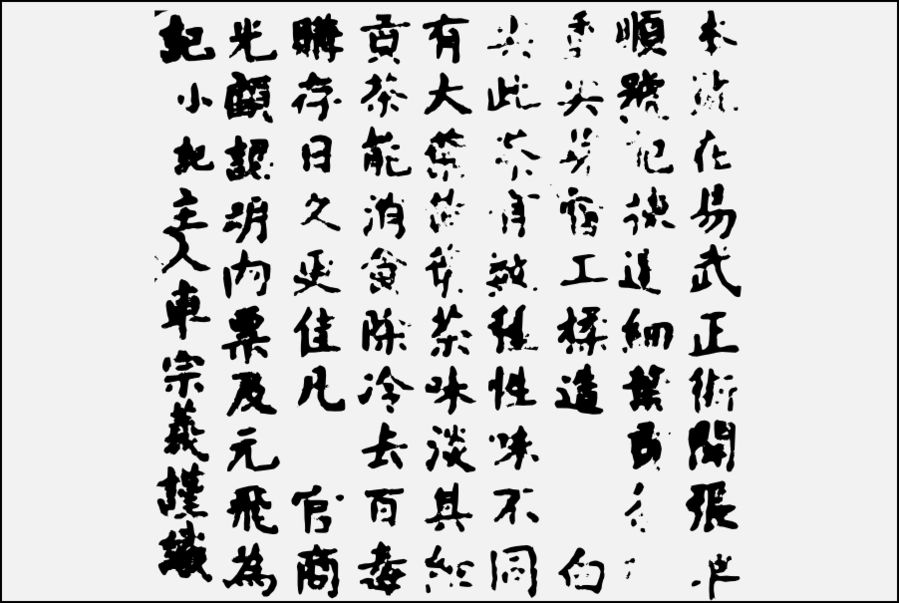 本號在易武正街開張車
順號記揀造細
尖芽工揉造 白
尖此茶有效種性味不同
有大葉茶味淡其能
貢茶能消食除冷去百毒
購存日久更佳凡 官商
光顧認明內票及元飛為
記小記主人車宗義謹識